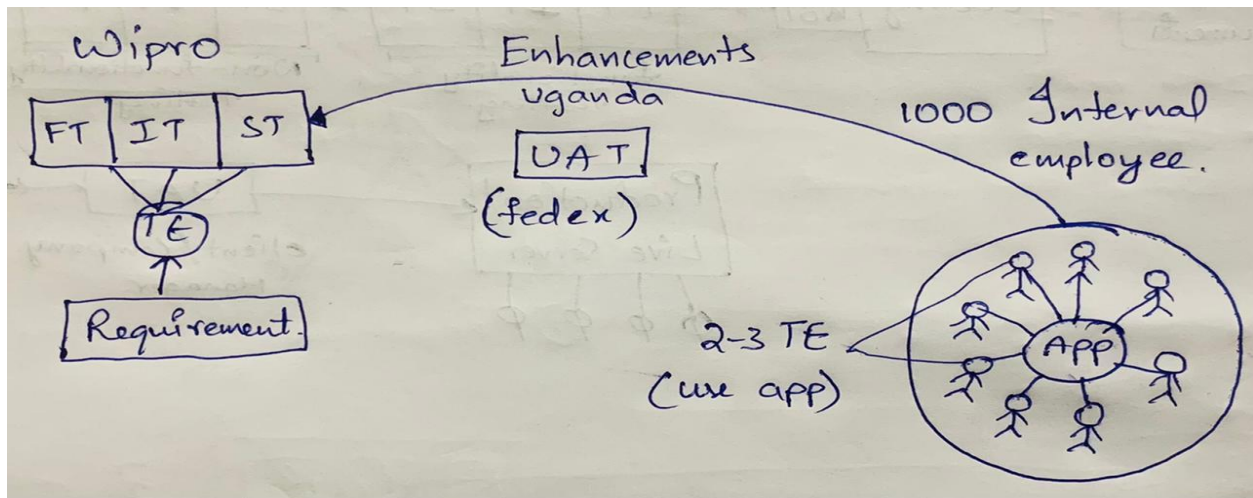 Wipro
FT IT ST
TE
Requirement.
Enhancements
Uganda
UAT
(fedex)
1000 Internal
employee.
2-3 TE
(use app)
App